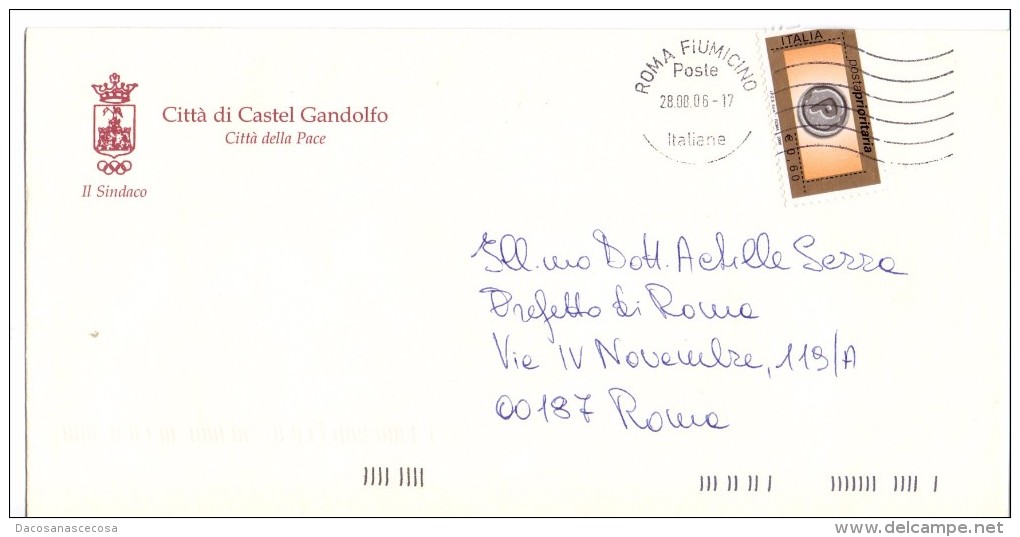 Città di Castel Gandolfo
Città della Pace
Il Sindaco
ROMA FIUMICINO
Poste
28.08.06-17
Italiane
ITALIA
postaprioritaria
€ 0,60
Ill.mo Dott. Achille Serra
Prefetto di Roma
Via IV Novembre, 119/A
00187 Roma
Dacosanascecosa
www.delcampe.net